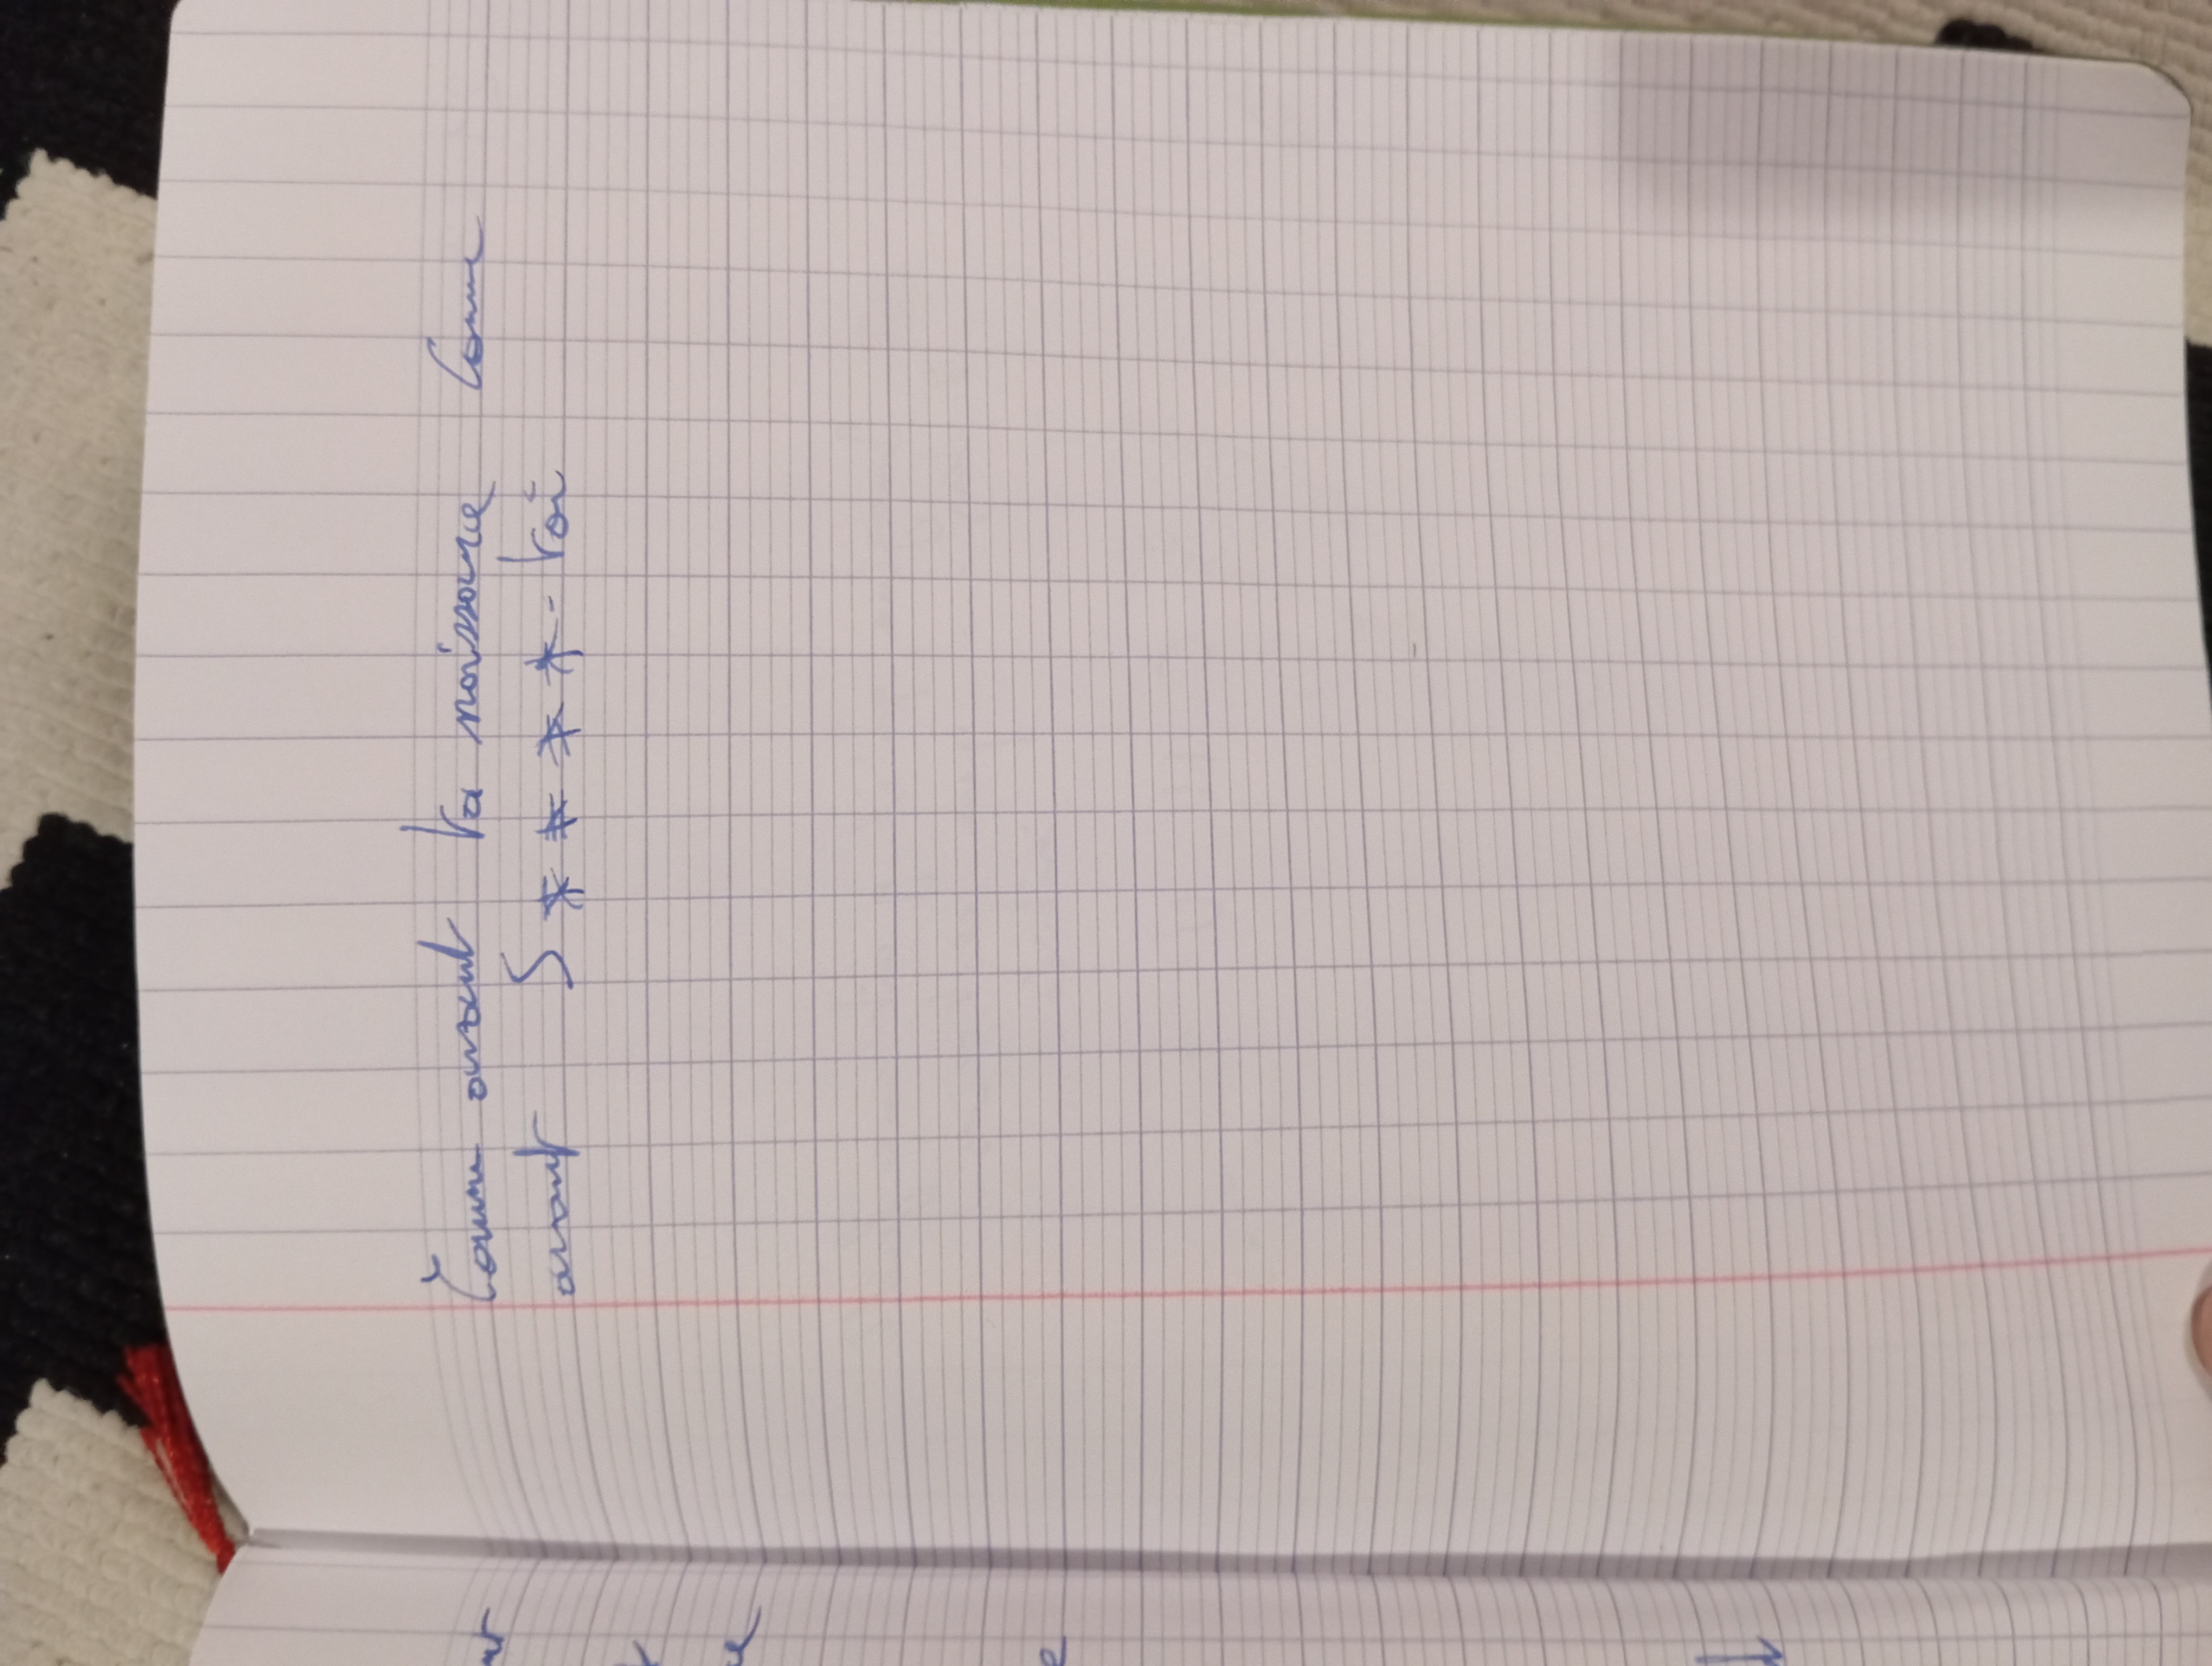 Comme avant ta naissance Comme
avant S****-toi